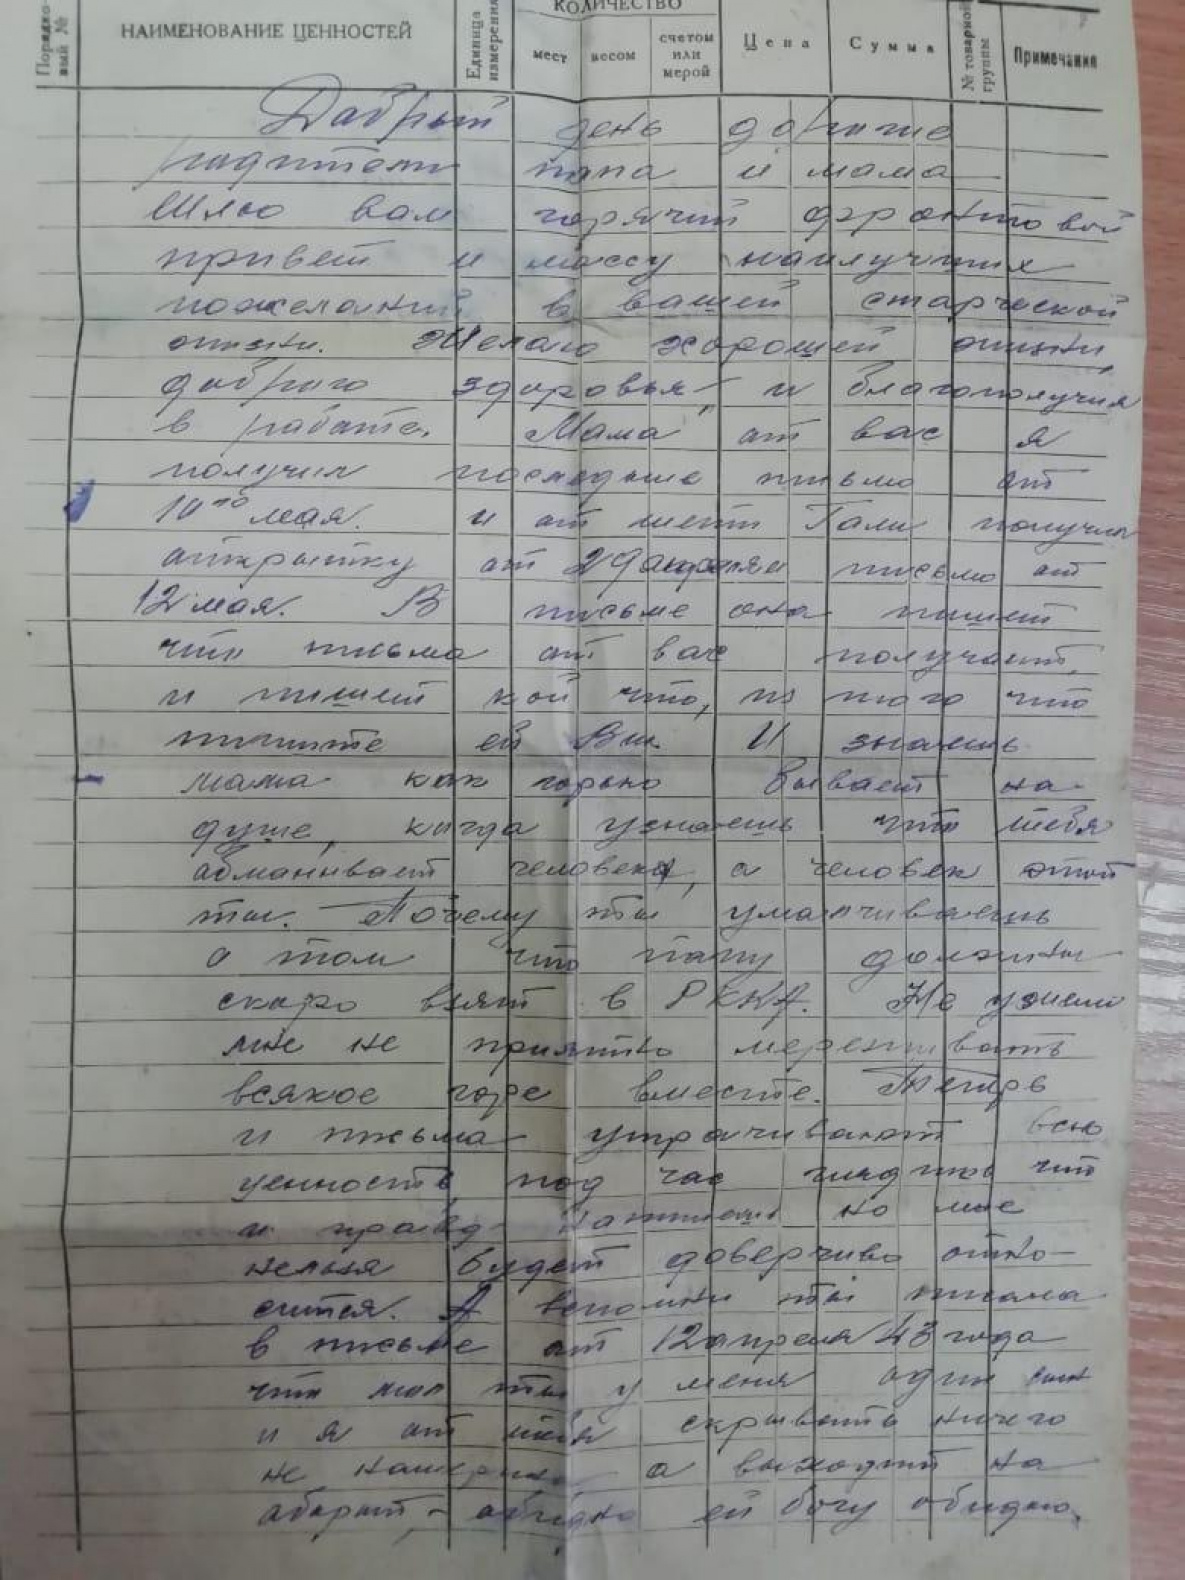 Порядко-
вый №
НАИМЕНОВАНИЕ ЦЕННОСТЕЙ
Единица
измерения
КОЛИЧЕСТВО
мест
весом
счетом
или
мерой
Цена
Сумма
№ товарной
группы
Примечание
Дабрый день дорогие
радители папа и мама
Шлю вам горячий фронтовой
привет и массу наилучших
пожеланий в вашей старческой
жизни. Желаю хорошей жизни,
доброго здоровья, и благополучия
в работе. Мама от вас я
получил последние письмо от
10го мая. и от тёти Гали получил
открытку от 29 апреля и письмо от
12 мая. В письме она пишет
что письма от вас получает,
и пишет кой что, из того что
пишите ей Вы. И знаешь
мама как горько бывает на
душе, когда узнаешь что тебя
абманивает человек, а человек этот
ты. Почему ты умалчиваешь
о том что папу должны
скоро взять в РККА. Не ужели
мне не приятно переживать
всякое горе вместе. Теперь
и письма утрачивают всю
ценность под час что
и правду напишешь но мне
нельзя будет доверчиво отно-
сится. А вспомни ты писала
в письме от 12 апреля 43 года
что мол ты у меня один сын
и я от тебя скрывать ничего
не намерена а выходит на
абарот - обидно ей богу обидно.